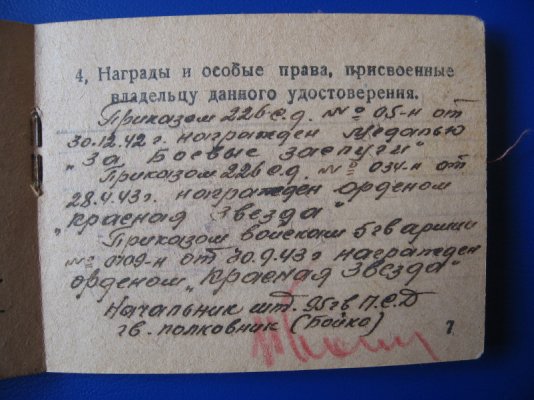 4, Награды и особые права, присвоенные
владельцу данного удостоверения.
Приказом 226 с.д. № 05-н от
30.12.42 г. награжден Медалью
"За Боевые заслуги"
Приказом 226 с.д. № 034-н от
28.4.43 г. награжден орденом
"Красная Звезда"
Приказом войскам 5 гв армии
№ 0109-н от 30.9.43 г награжден
орденом "Красная Звезда"
Начальник шт. 95 гв П.С.Д
гв. полковник (Бойко)
7